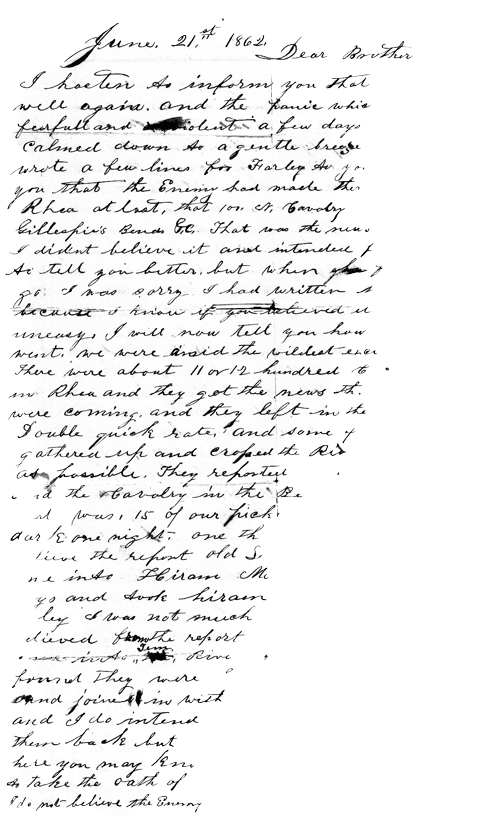 June. 21st 1862.
Dear Brother
I hasten to inform you that
well again. and the panic whic
fearfull and violent a few days
calmed down to a gentle breese
wrote a few lines for Farley to yo
you that the Enemy had made the
Rhea at last, that 100 N. Cavalry
Gillespie's Bend &C. That was the new
I didnt believe it and intended f
to tell you better, but when
go I was sorry I had written
because I know if you believed it
uneasy, I will now tell you how
went, we were amid the wildest exci
There were about 11 or 12 hundred
in Rhea and they got the news th
were coming, and they left in the
Double quick rate, and some
gathered up and crossed the Riv
as possible. They reported
the Cavalry in the Be
was, 15 of our pick
dark one night. one th
lieve the report old S.
ne into Hiram Mc
ys and took hiram
ley I was not much
elieved from the report
into Tenn Rive
found they were
and joined in with
and I do intend
them back but
here you may kn
to take the oath of
I do not believe the Enemy